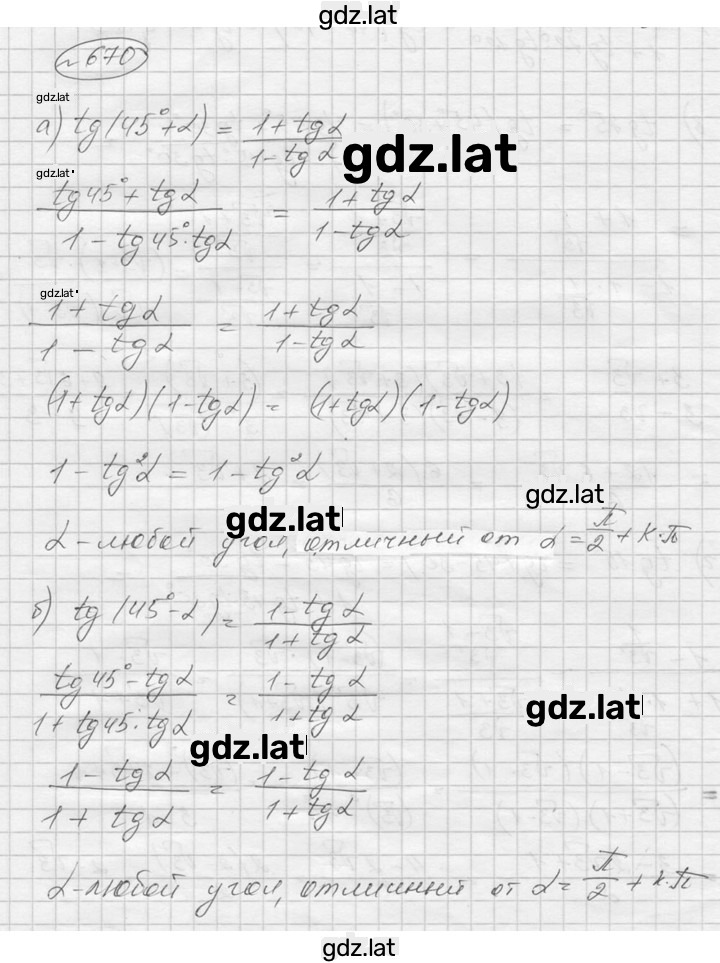 gdz.lat
№ 670
gdz.lat
а) tg(45°+α) = (1+tgα)/(1-tgα)
gdz.lat
gdz.lat
(tg45°+tgα)/(1-tg45°·tgα) = (1+tgα)/(1-tgα)
gdz.lat
(1+tgα)/(1-tgα) = (1+tgα)/(1-tgα)
(1+tgα)(1-tgα) = (1+tgα)(1-tgα)
1-tg²α = 1-tg²α
gdz.lat
gdz.lat
α-любой угол, отличный от α=π/2+к·π
б) tg(45°-α) = (1-tgα)/(1+tgα)
(tg45°-tgα)/(1+tg45·tgα) = (1-tgα)/(1+tgα)
gdz.lat
gdz.lat
(1-tgα)/(1+tgα) = (1-tgα)/(1+tgα)
α-любой угол, отличный от α=π/2+к·π
gdz.lat